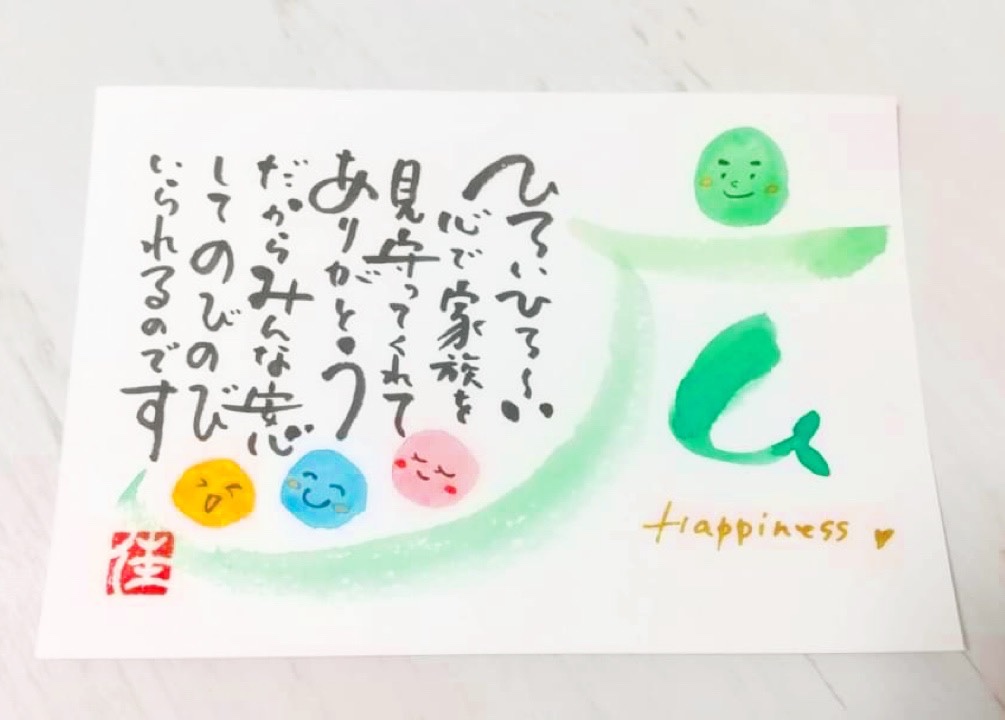 広
ひろいひろ〜い
心で家族を
見守ってくれて
ありがとう
だからみんな安心
してのびのび
いられるのです
Happiness
佳